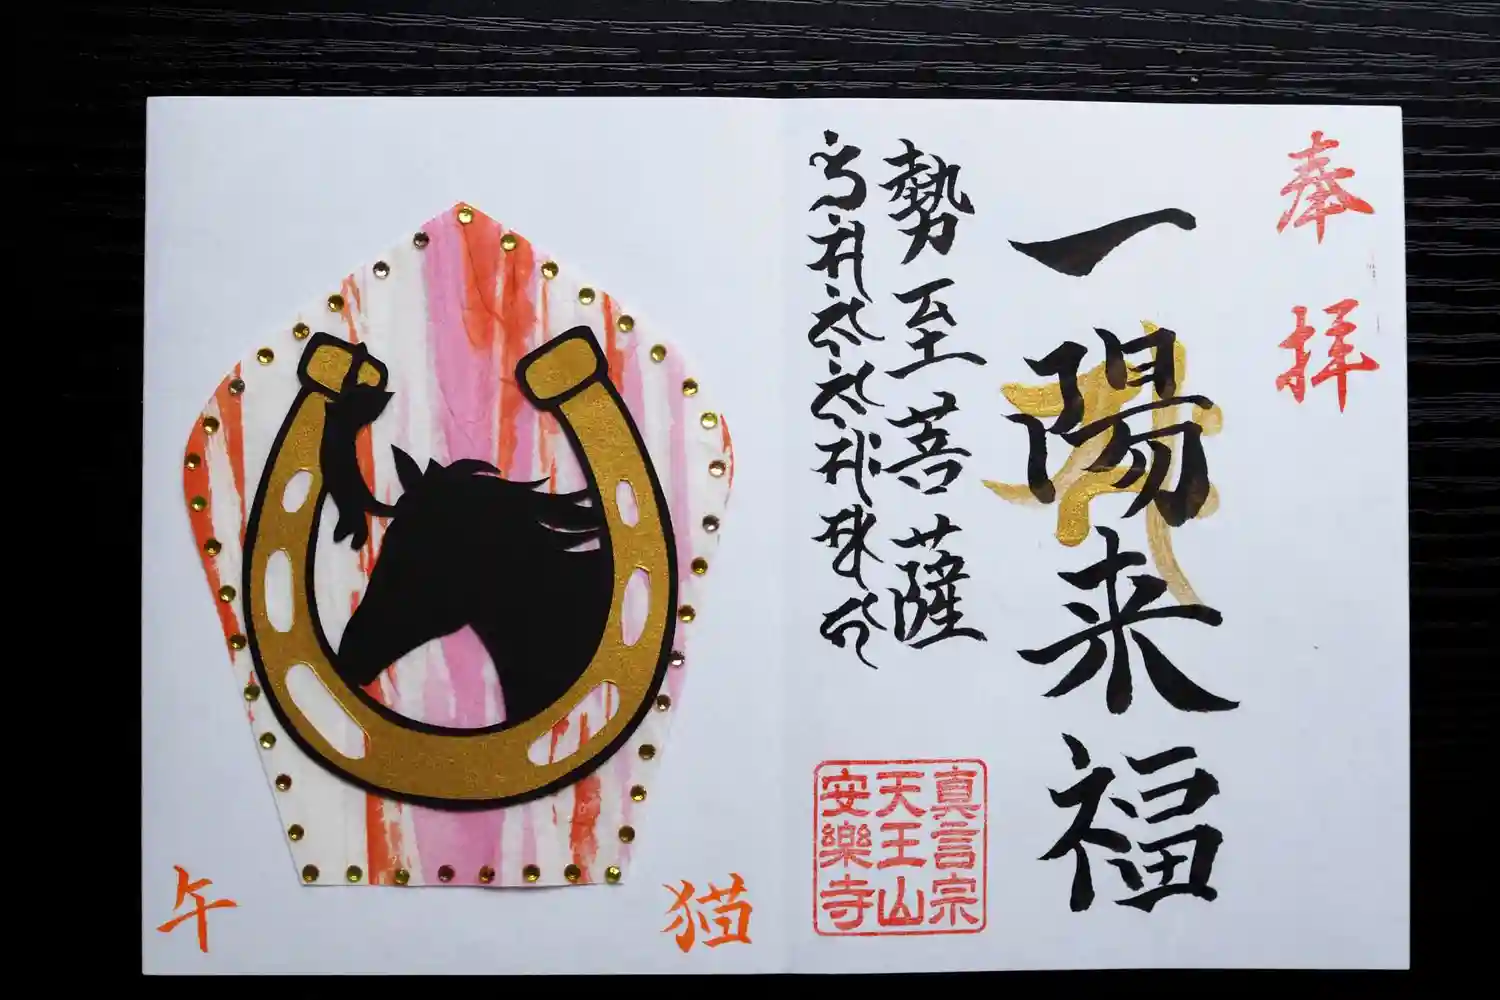 奉拝
一陽来福
勢至菩薩
真言宗
天王山
安樂寺
猫
午